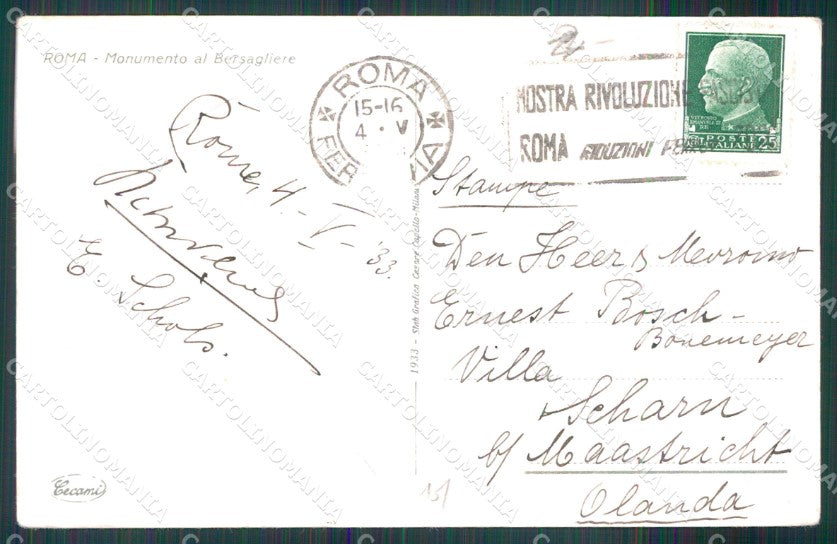 ROMA - Monumento al Bersagliere
Rome, 4 - V - '33.
E. Schols.
ROMA
15-16
4 · V
FERROVIA
MOSTRA RIVOLUZIONE
ROMA RIDUZIONI
VITTORIO
EMANUELE III
RE
POSTE
ITALIANE 25
Stampe
Den Heer & Mevrouw
Ernest Bosch-
Bonemeyer
Villa
Scharn
b/ Maastricht
Olanda
1933 - Stab. Grafico Cesare Capello-Milano
Cecami
151
CARTOLINOMANIA